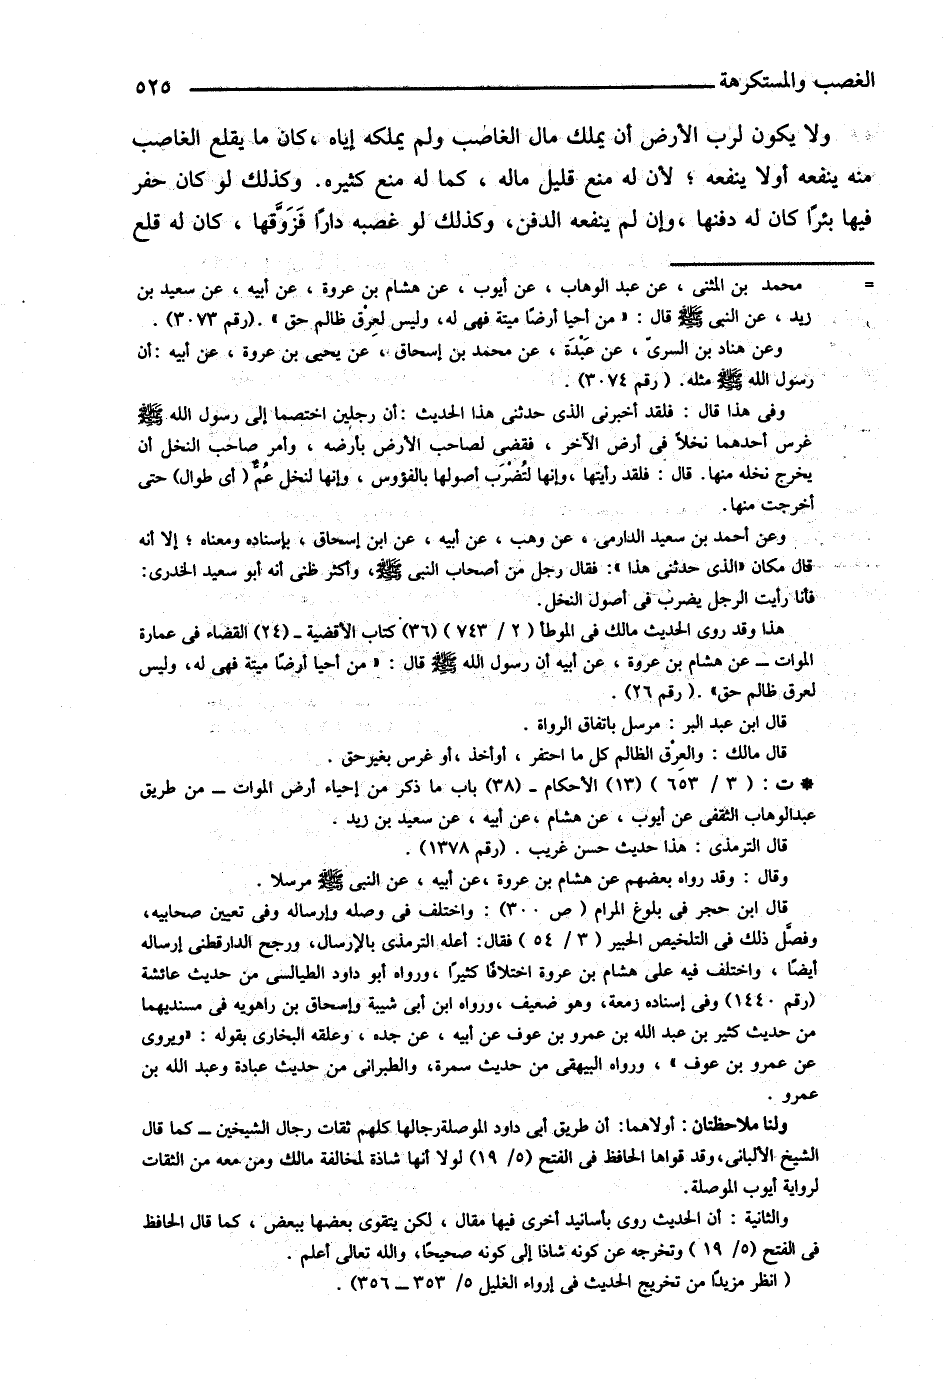 الغصب والمستكرهة ٥٢٥
ولا يكون لرب الأرض أن يملك مال الغاصب ولم يملكه إياه ،كان ما يقلع الغاصب
منه ينفعه أولا ينفعه ؛ لأن له منع قليل ماله ، كما له منع كثيره. وكذلك لو كان حفر
فيها بئرًا كان له دفنها ،وإن لم ينفعه الدفن، وكذلك لو غصبه دارًا فَزَوَّقها ، كان له قلع
= محمد بن المثنى ، عن عبد الوهاب ، عن أيوب ، عن هشام بن عروة ، عن أبيه ، عن سعيد بن
زيد ، عن النبى ﷺ قال : « من أحيا أرضًا ميتة فهى له، وليس لعِرْق ظالم حق » .(رقم ٣٠٧٣) .
وعن هناد بن السرىّ ، عن عَبْدَة ، عن محمد بن إسحاق ، عن يحيى بن عروة ، عن أبيه :أن
رسول الله ﷺ مثله. ( رقم ٣٠٧٤) .
وفى هذا قال : فلقد أخبرنى الذى حدثنى هذا الحديث :أن رجلين اختصما إلى رسول الله ﷺ
غرس أحدهما نخلاً فى أرض الآخر ، فقضى لصاحب الأرض بأرضه ، وأمر صاحب النخل أن
يخرج نخله منها. قال : فلقد رأيتها ،وإنها لتُضْرَب أصولها بالفؤوس ، وإنها لنخل عُمٌّ ( أى طوال) حتى
أخرجت منها.
وعن أحمد بن سعيد الدارمى ، عن وهب ، عن أبيه ، عن ابن إسحاق ، بإسناده ومعناه ؛ إلا أنه
قال مكان «الذى حدثنى هذا »: فقال رجل من أصحاب النبى ﷺ، وأكثر ظنى أنه أبو سعيد الخدرى:
فأنا رأيت الرجل يضرب فى أصول النخل.
هذا وقد روى الحديث مالك فى الموطأ ( ٢ / ٧٤٣ ) (٣٦) كتاب الأقضية ـ (٢٤) القضاء فى عمارة
الموات ــ عن هشام بن عروة ، عن أبيه أن رسول الله ﷺ قال : « من أحيا أرضًا ميتة فهى له، وليس
لعرق ظالم حق» .( رقم ٢٦) .
قال ابن عبد البر : مرسل باتفاق الرواة .
قال مالك : والعِرْق الظالم كل ما احتفر ، أوأخذ ،أو غرس بغيرحق .
* ت : ( ٣ / ٦٥٣ ) (١٣) الأحكام ـ (٣٨) باب ما ذكر من إحياء أرض الموات ــ من طريق
عبدالوهاب الثقفى عن أيوب ، عن هشام ،عن أبيه ، عن سعيد بن زيد .
قال الترمذى : هذا حديث حسن غريب . (رقم ١٣٧٨) .
وقال : وقد رواه بعضهم عن هشام بن عروة ،عن أبيه ، عن النبى ﷺ مرسلا .
قال ابن حجر فى بلوغ المرام ( ص ٣٠٠) : واختلف فى وصله وإرساله وفى تعيين صحابيه،
وفصَّل ذلك فى التلخيص الحبير ( ٣ / ٥٤ ) فقال: أعله الترمذى بالإرسال، ورجح الدارقطنى إرساله
أيضًا ، واختلف فيه على هشام بن عروة اختلافًا كثيرًا ،ورواه أبو داود الطيالسى من حديث عائشة
(رقم ١٤٤٠) وفى إسناده زمعة، وهو ضعيف ،ورواه ابن أبى شيبة وإسحاق بن راهويه فى مسنديهما
من حديث كثير بن عبد الله بن عمرو بن عوف عن أبيه ، عن جده ، وعلقه البخارى بقوله : «ويروى
عن عمرو بن عوف » ، ورواه البيهقى من حديث سمرة، والطبرانى من حديث عبادة وعبد الله بن
عمرو .
ولنا ملاحظتان : أولاهما: أن طريق أبى داود الموصلةرجالها كلهم ثقات رجال الشيخين ــ كما قال
الشيخ الألبانى،وقد قواها الحافظ فى الفتح (٥/ ١٩) لولا أنها شاذة لمخالفة مالك ومن معه من الثقات
لرواية أيوب الموصلة.
والثانية : أن الحديث روى بأسانيد أخرى فيها مقال ، لكن يتقوى بعضها ببعض ، كما قال الحافظ
فى الفتح (٥/ ١٩ ) وتخرجه عن كونه شاذا إلى كونه صحيحًا، والله تعالى أعلم .
( انظر مزيدًا من تخريج الحديث فى إرواء الغليل ٥/ ٣٥٣ ــ ٣٥٦) .